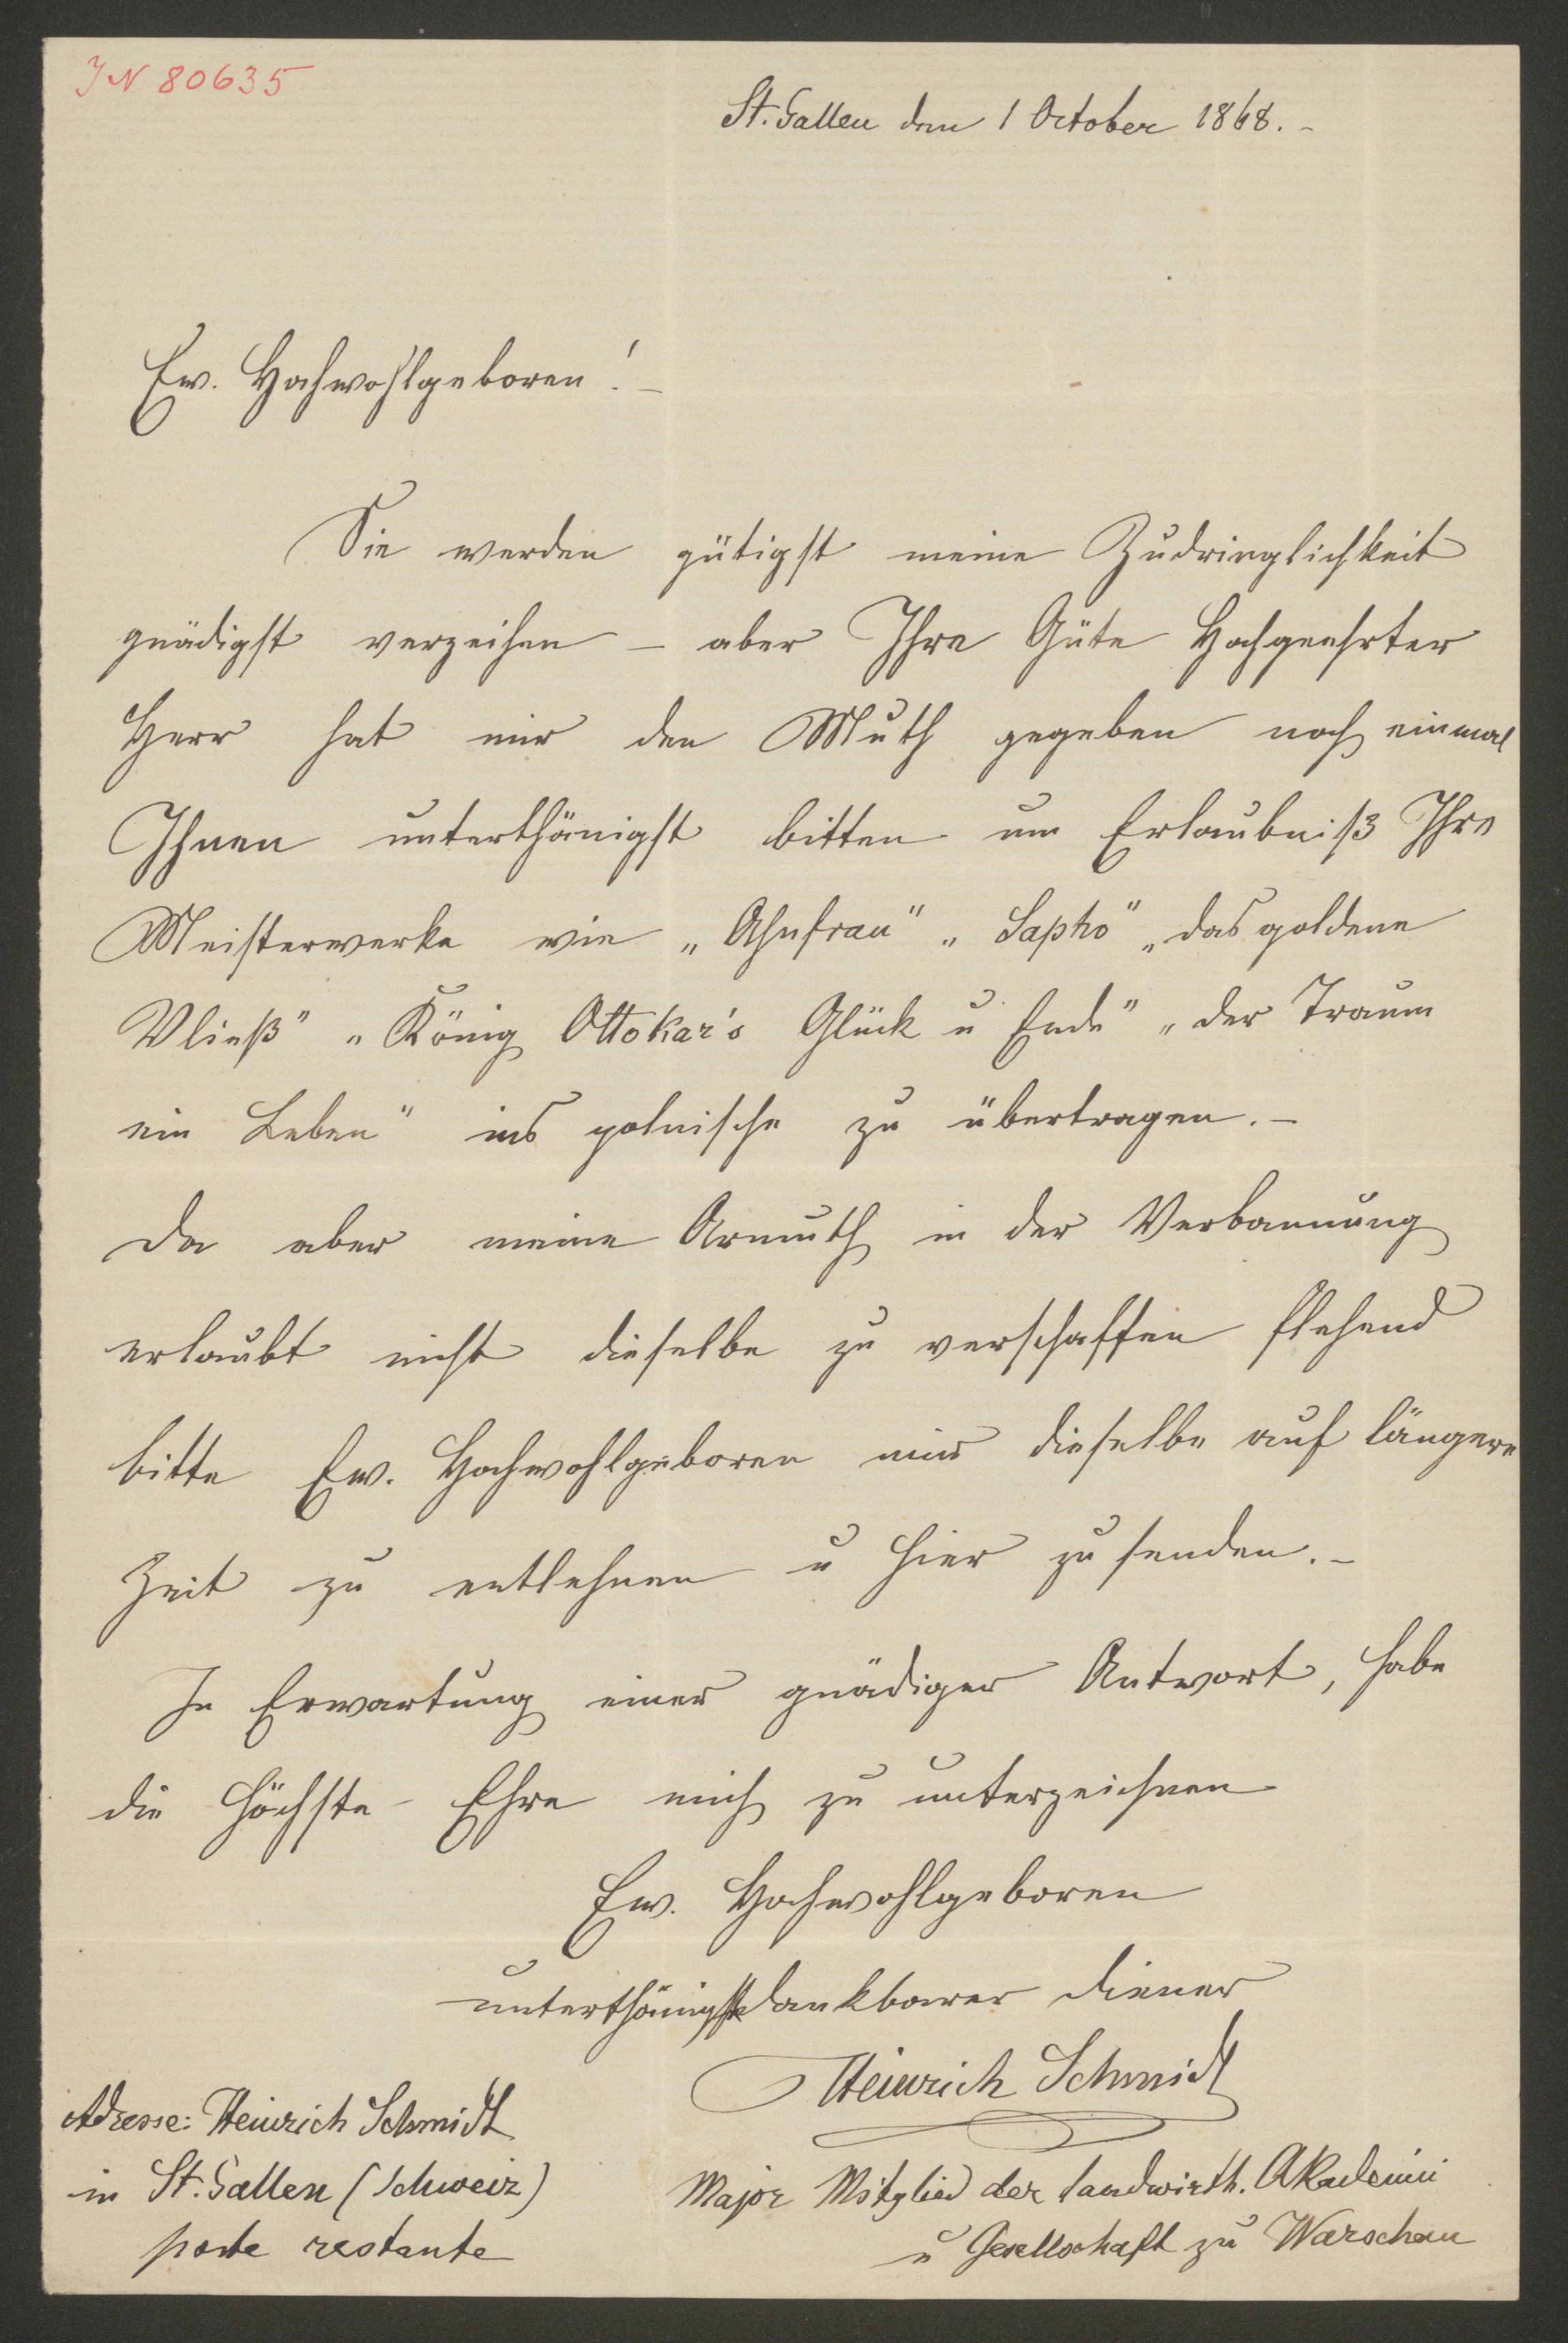 JN 80635
St. Gallen den 1 October 1868. -
Ew. Hochwohlgeboren! -
Sie werden gütigst meine Zudringlichkeit
gnädigst verzeihen - aber Ihre Güte Hochgeehrter
Herr hat mir den Muth gegeben noch einmal
Ihnen unterthänigst bitten um Erlaubniß Ihre
Meisterwerke wie „Ahnfrau" „Sapho" „das goldene
Vließ" „König Ottokar's Glück u Ende" „der Traum
ein Leben" ins polnische zu übertragen. -
Da aber meine Armuth in der Verbannung
erlaubt nicht dieselbe zu verschaffen flehend
bitte Ew. Hochwohlgeboren mir dieselbe auf längere
Zeit zu entlehnen u hier zu senden. -
In Erwartung einer gnädiger Antwort, habe
die höchste Ehre mich zu unterzeichnen
Ew. Hochwohlgeboren
unterthänigst dankbarer Diener
Heinrich Schmidt
Adresse: Heinrich Schmidt
in St. Gallen (Schweiz)
poste restante
Major Mitglied der landwirth. Akademii
u Gesellschaft zu Warschau